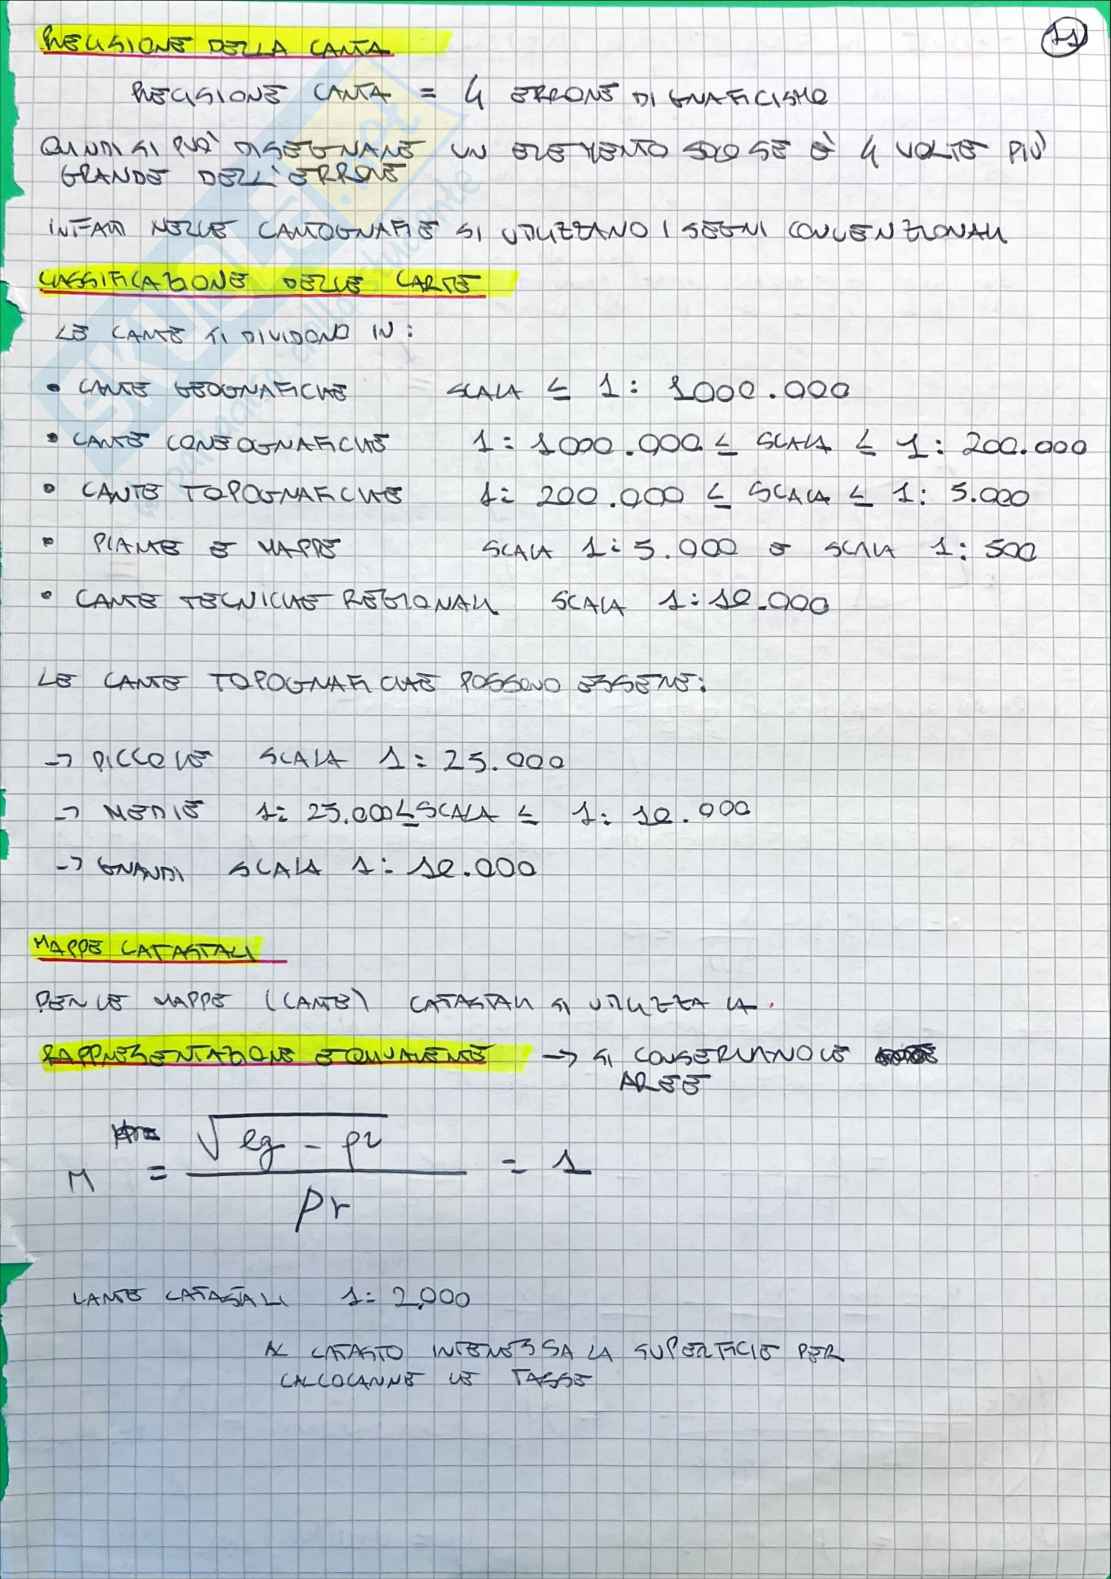 11
PRECISIONE DELLA CARTA
PRECISIONE CARTA = 4 ERRORE DI GRAFICISMO
QUINDI SI PUÒ DISEGNARE UN ELEMENTO SOLO SE È 4 VOLTE PIÙ
GRANDE DELL'ERRORE
INFATTI NELLE CARTOGRAFIE SI UTILIZZANO I SEGNI CONVENZIONALI
CLASSIFICAZIONE DELLE CARTE
LE CARTE SI DIVIDONO IN:
• CARTE GEOGRAFICHE SCALA ≤ 1: 1000.000
• CARTE COREOGRAFICHE 1: 1000.000 ≤ SCALA ≤ 1: 200.000
• CARTE TOPOGRAFICHE 1: 200.000 ≤ SCALA ≤ 1: 5.000
• PIANTE E MAPPE SCALA 1:5.000 e SCALA 1: 500
• CARTE TECNICHE REGIONALI SCALA 1:10.000
LE CARTE TOPOGRAFICHE POSSONO ESSERE:
→ PICCOLE SCALA 1: 25.000
→ MEDIE 1: 25.000 ≤ SCALA ≤ 1: 10.000
→ GRANDI SCALA 1: 10.000
MAPPE CATASTALI
PER LE MAPPE (CARTE) CATASTALI SI UTILIZZA LA
RAPPRESENTAZIONE EQUIVALENTE → SI CONSERVANO LE
AREE
M = √eg - p² / pr = 1
CARTE CATASALI 1: 2.000
AL CATASTO INTERESSA LA SUPERFICIE PER
CALCOLARNE LE TASSE
SKUOLA.net